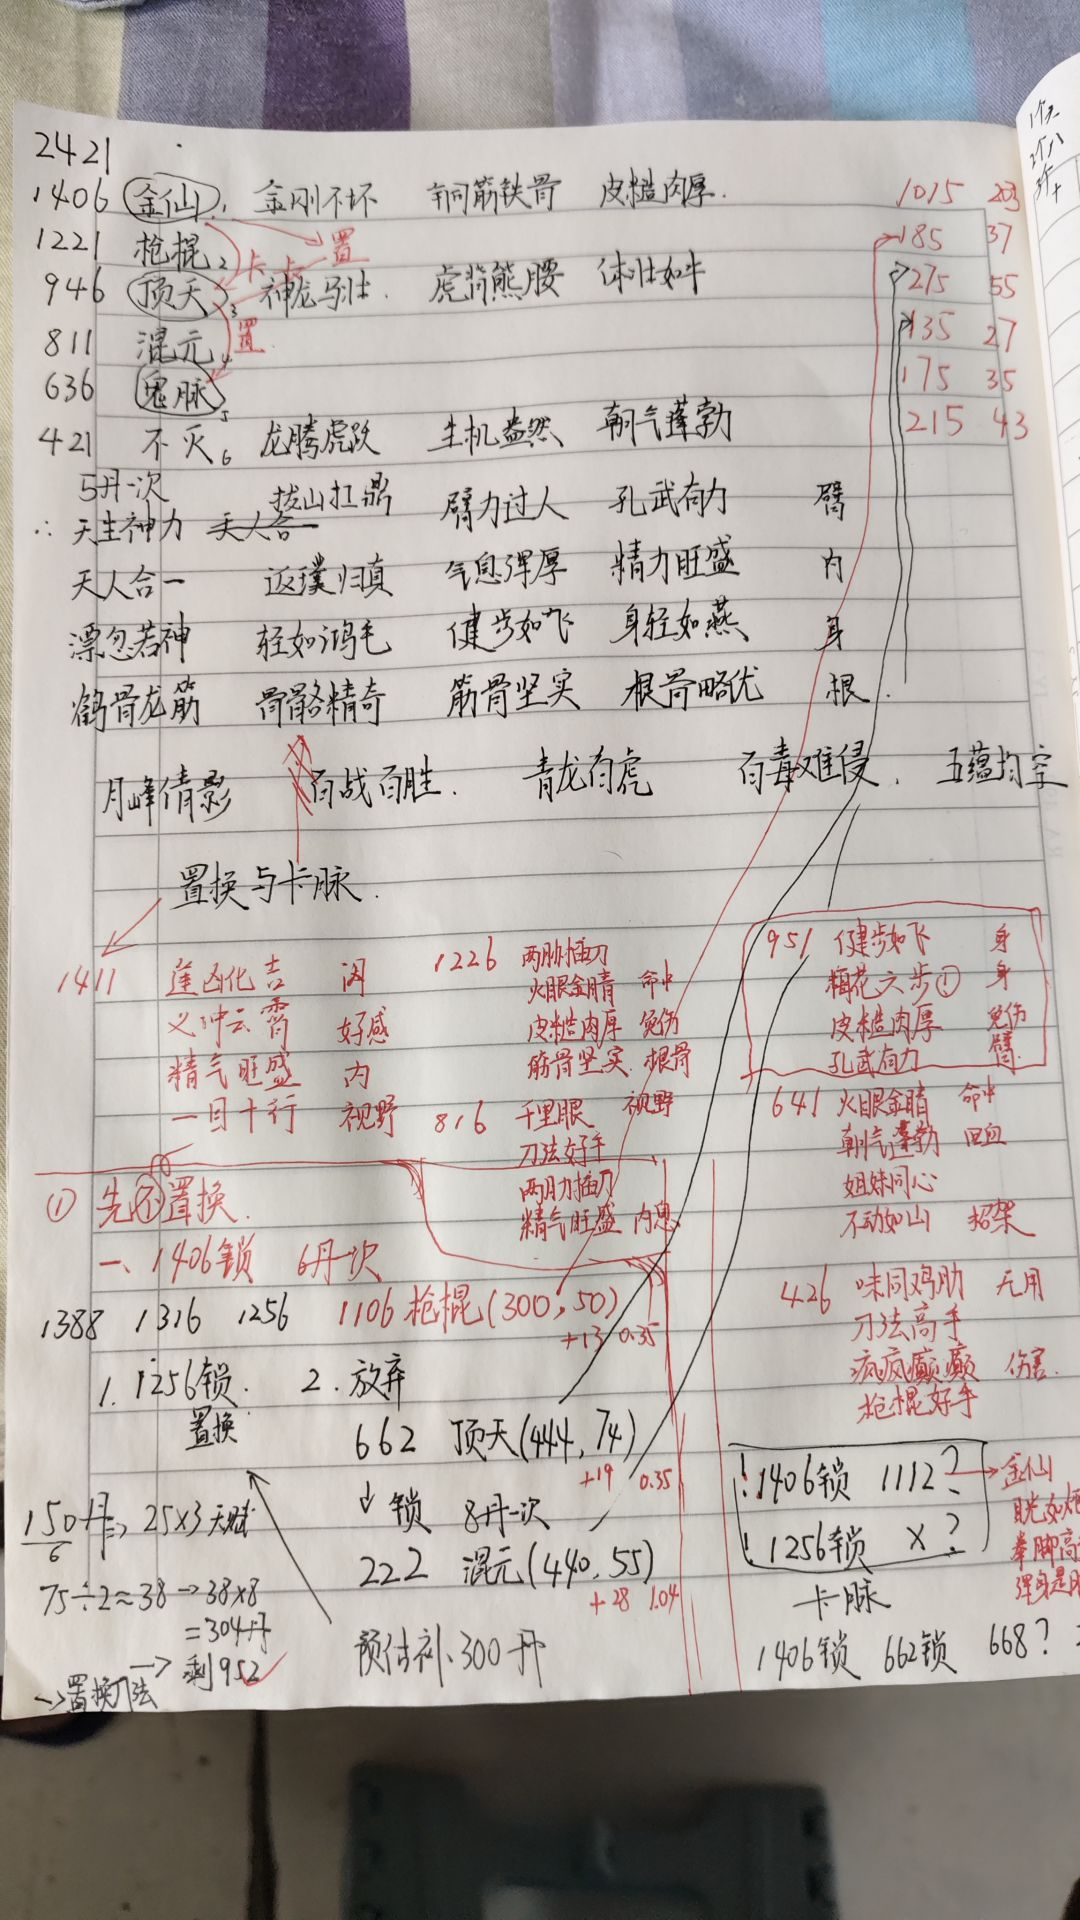 2421
1406 金仙1 金刚不坏 铜筋铁骨 皮糙肉厚 1015 203
1221 枪棍2 卡 卡 置 185 37
946 顶天3 神龙马壮 虎背熊腰 体壮如牛 275 55
811 混元4 置 135 27
636 鬼脉5 175 35
421 不灭6 龙腾虎跃 生机盎然 朝气蓬勃 215 43
5丹一次 拔山扛鼎 臂力过人 孔武有力 臂
∴ 天生神力 天人合
天人合一 返璞归真 气息浑厚 精力旺盛 内
漂忽若神 轻如鸿毛 健步如飞 身轻如燕 身
鹤骨龙筋 骨骼精奇 筋骨坚实 根骨略优 根
月峰倩影 百战百胜 青龙白虎 百毒难侵 五蕴均空
置换与卡脉
1411 逢凶化吉 闪
义冲云霄 好感
精气旺盛 内
一目十行 视野
1226 两肋插刀
火眼金睛 命中
皮糙肉厚 免伤
筋骨坚实 根骨
816 千里眼 视野
刀法好手
两肋插刀
精气旺盛 内息
951 健步如飞 身
梅花六步① 身
皮糙肉厚 免伤
孔武有力 臂
641 火眼金睛 命中
朝气蓬勃 回血
姐妹同心
不动如山 招架
426 味同鸡肋 无用
刀法高手
疯疯癫癫 伤害
枪棍好手
① 先不置换
一、1406锁 6丹一次
1388 1316 1256 1106 枪棍(300,50)
+13 0.35
1. 1256锁 2. 放弃
置换
662 顶天(444,74)
+19 0.35
↓ 锁 8丹一次
222 混元(440,55)
+28 1.04
预估补300丹
150丹/6 ⇒ 25×3天赋
75÷2≈38 → 38×8
=304丹
→ 剩952
→置换7法
!1406锁 1112? → 金仙
!1256锁 x?
卡脉
1406锁 662锁 668?